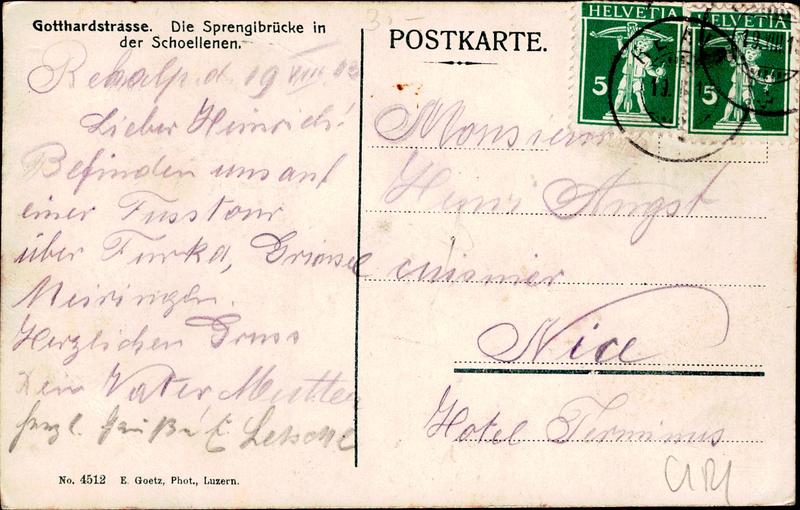 Gotthardstrasse. Die Sprengibrücke in
der Schoellenen.
3.-
POSTKARTE.
HELVETIA
5
HELVETIA
5
Realp d. 19 VIII
Lieber Heinrich!
Befinden uns auf
einer Fusstour
über Furka, Grimsel
Meiringen.
Herzlichen Gruss
Dein Vater Mutter
herzl. Grüße E.
Monsieur
Henri Angst
cuisinier
Nice
Hotel Terminus
No. 4512 E. Goetz, Phot., Luzern.